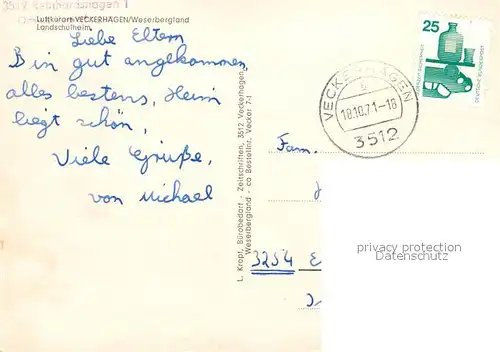 3512 Reinhardshagen 1
Luftkurort VECKERHAGEN/Weserbergland
Landschulheim
Liebe Eltern
Bin gut angekommen,
alles bestens, Heim
liegt schön,
Viele Grüße,
von Michael
L. Kropf, Bürobedarf - Zeitschriften, 3512 Veckerhagen,
Weserbergland - ca Bestellnr. Vecker 7/1
25
DEUTSCHE BUNDESPOST
VECKERHAGEN
b
18.10.71-18
3512
Fam.
3254 E
privacy protection
Datenschutz